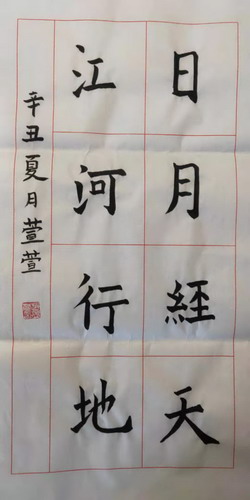 日月經天
江河行地
辛丑夏月萱萱